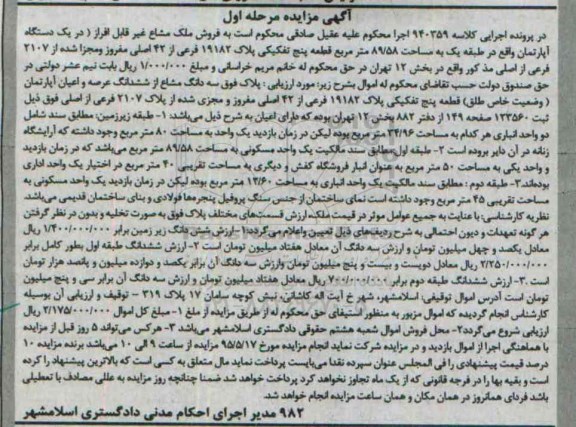 آگهی مزایده مرحله اول
در پرونده اجرایی کلاسه ۹۴۰۳۵۹ اجرا محکوم علیه عقیل صادقی محکوم است به فروش ملک مشاع غیر قابل افراز ( در یک دستگاه
آپارتمان واقع در طبقه یک به مساحت ۸۹/۵۸ متر مربع قطعه پنج تفکیکی پلاک ۱۹۱۸۲ فرعی از ۴۲ اصلی مفروز ومجزا شده از ۲۱۰۷
فرعی از اصلی مذ کور واقع در بخش ۱۲ تهران در حق محکوم له خانم مریم خراسانی و مبلغ ۱/۰۰۰/۰۰۰ ریال بابت نیم عشر دولتی در
حق صندوق دولت حسب تقاضای محکوم له اموال بشرح زیر: مورد ارزیابی : پلاک فوق سه دانگ مشاع از ششدانگ عرصه و اعیان آپارتمان
( وضعیت خاص طلق) قطعه پنج تفکیکی پلاک ۱۹۱۸۲ فرعی از ۴۲ اصلی مفروز و مجزی شده از پلاک ۲۱۰۷ فرعی از اصلی فوق ذیل
ثبت ۱۳۳۵۶۰ صفحه ۱۴۹ از دفتر ۸۸۲ بخش ۱۲ تهران بوده که دارای اعیان به شرح ذیل می‌باشد: ۱- طبقه زیرزمین: مطابق سند شامل
دو واحد انباری هر کدام به مساحت ۳۴/۹۶ متر مربع بوده لیکن در زمان بازدید یک واحد به مساحت ۸۰ متر مربع وجود داشته که آرایشگاه
زنانه در آن دایر بروده است ۲- طبقه اول مطابق سند مالکیت یک واحد مسکونی به مساحت ۸۹/۵۸ متر مربع می‌باشد که در زمان بازدید
و واحد یکی به مساحت ۵۰ متر مربع به عنوان انبار فروشگاه کفش و دیگری به مساحت تقریبی ۴۰ متر مربع در اختیار یک واحد اداری
بوده‌اند۳- طبقه دوم : مطابق سند مالکیت یک واحد انباری به مساحت ۱۳/۶۰ متر مربع بوده لیکن در زمان بازدید یک واحد مسکونی به
مساحت تقریبی ۴۵ متر مربع وجود داشته است نمای ساختمان از جنس سنگ پروفیل پنجره‌ها فولادی و بنای ساختمان قدیمی می‌باشد.
نظریه کارشناسی: با عنایت به جمیع عوامل موثر در قیمت ملک، ارزش قسمت‌های مختلف پلاک فوق به صورت تخلیه و بدون در نظر گرفتن
هر گونه تعهدات و دیون احتمالی به شرح ردیف‌های ذیل تعیین واعلام می‌گردد۱- ارزش شش دانگ زیر زمین برابر ۱/۴۰۰/۰۰۰/۰۰۰ ریال
معادل یکصد و چهل میلیون تومان و ارزش سه دانگ آن معادل هفتاد میلیون تومان است ۲- ارزش ششدانگ طبقه اول بطور کامل برابر
۲/۲۵۰/۰۰۰/۰۰۰ ریال معادل دویست و بیست و پنج میلیون تومان وارزش سه دانگ آن برابر یکصد و دوازده میلیون و پانصد هزار تومان
است .۳- ارزش ششدانگ طبقه دوم برابر ۷۰۰/۰۰۰/۰۰۰ ریال معادل هفتاد میلیون تومان و ارزش سه دانگ آن برابر سی و پنج میلیون
تومان است آدرس اموال توقیفی: اسلامشهر، شهر خ آیت اله کاشانی، نبش کوچه سامان ۱۷ پلاک ۳۱۹ - توقیف و ارزیابی آن بوسیله
کارشناس انجام گردیده که اموال مزبور به منظور استیفای حق محکوم له از طریق مزایده از ملغ ۱- مبلغ کل اموال ۲/۱۷۵/۰۰۰/۰۰۰ ریال
ارزیابی شروع می‌گردد۲- محل فروش اموال شعبه هشتم حقوقی دادگستری اسلامشهر می‌باشد ۳- هرکس می‌تواند ۵ روز قبل از مزایده
با هماهنگی اجرا از اموال بازدید و در مزایده شرکت نماید انجام مزایده مورخ ۹۵/۵/۱۷ از ساعت ۹ الی ۱۰ می‌باشد برنده مزایده ۱۰
درصد قیمت پیشنهادی را فی المجلس عنوان سپرده نقدا می‌بایست پرداخت نماید مال متعلق به کسی است که بالاترین پیشنهاد را کرده
است و بقیه بها را در فرجه قانونی که از یک ماه تجاوز نخواهد کرد پرداخت خواهد شد ضمنا چنانچه روز مزایده به عللی مصادف با تعطیلی
باشد فردای همانروز در همان مکان و همان ساعت مزایده انجام خواهد شد.
۹۸۲ مدیر اجرای احکام مدنی دادگستری اسلامشهر